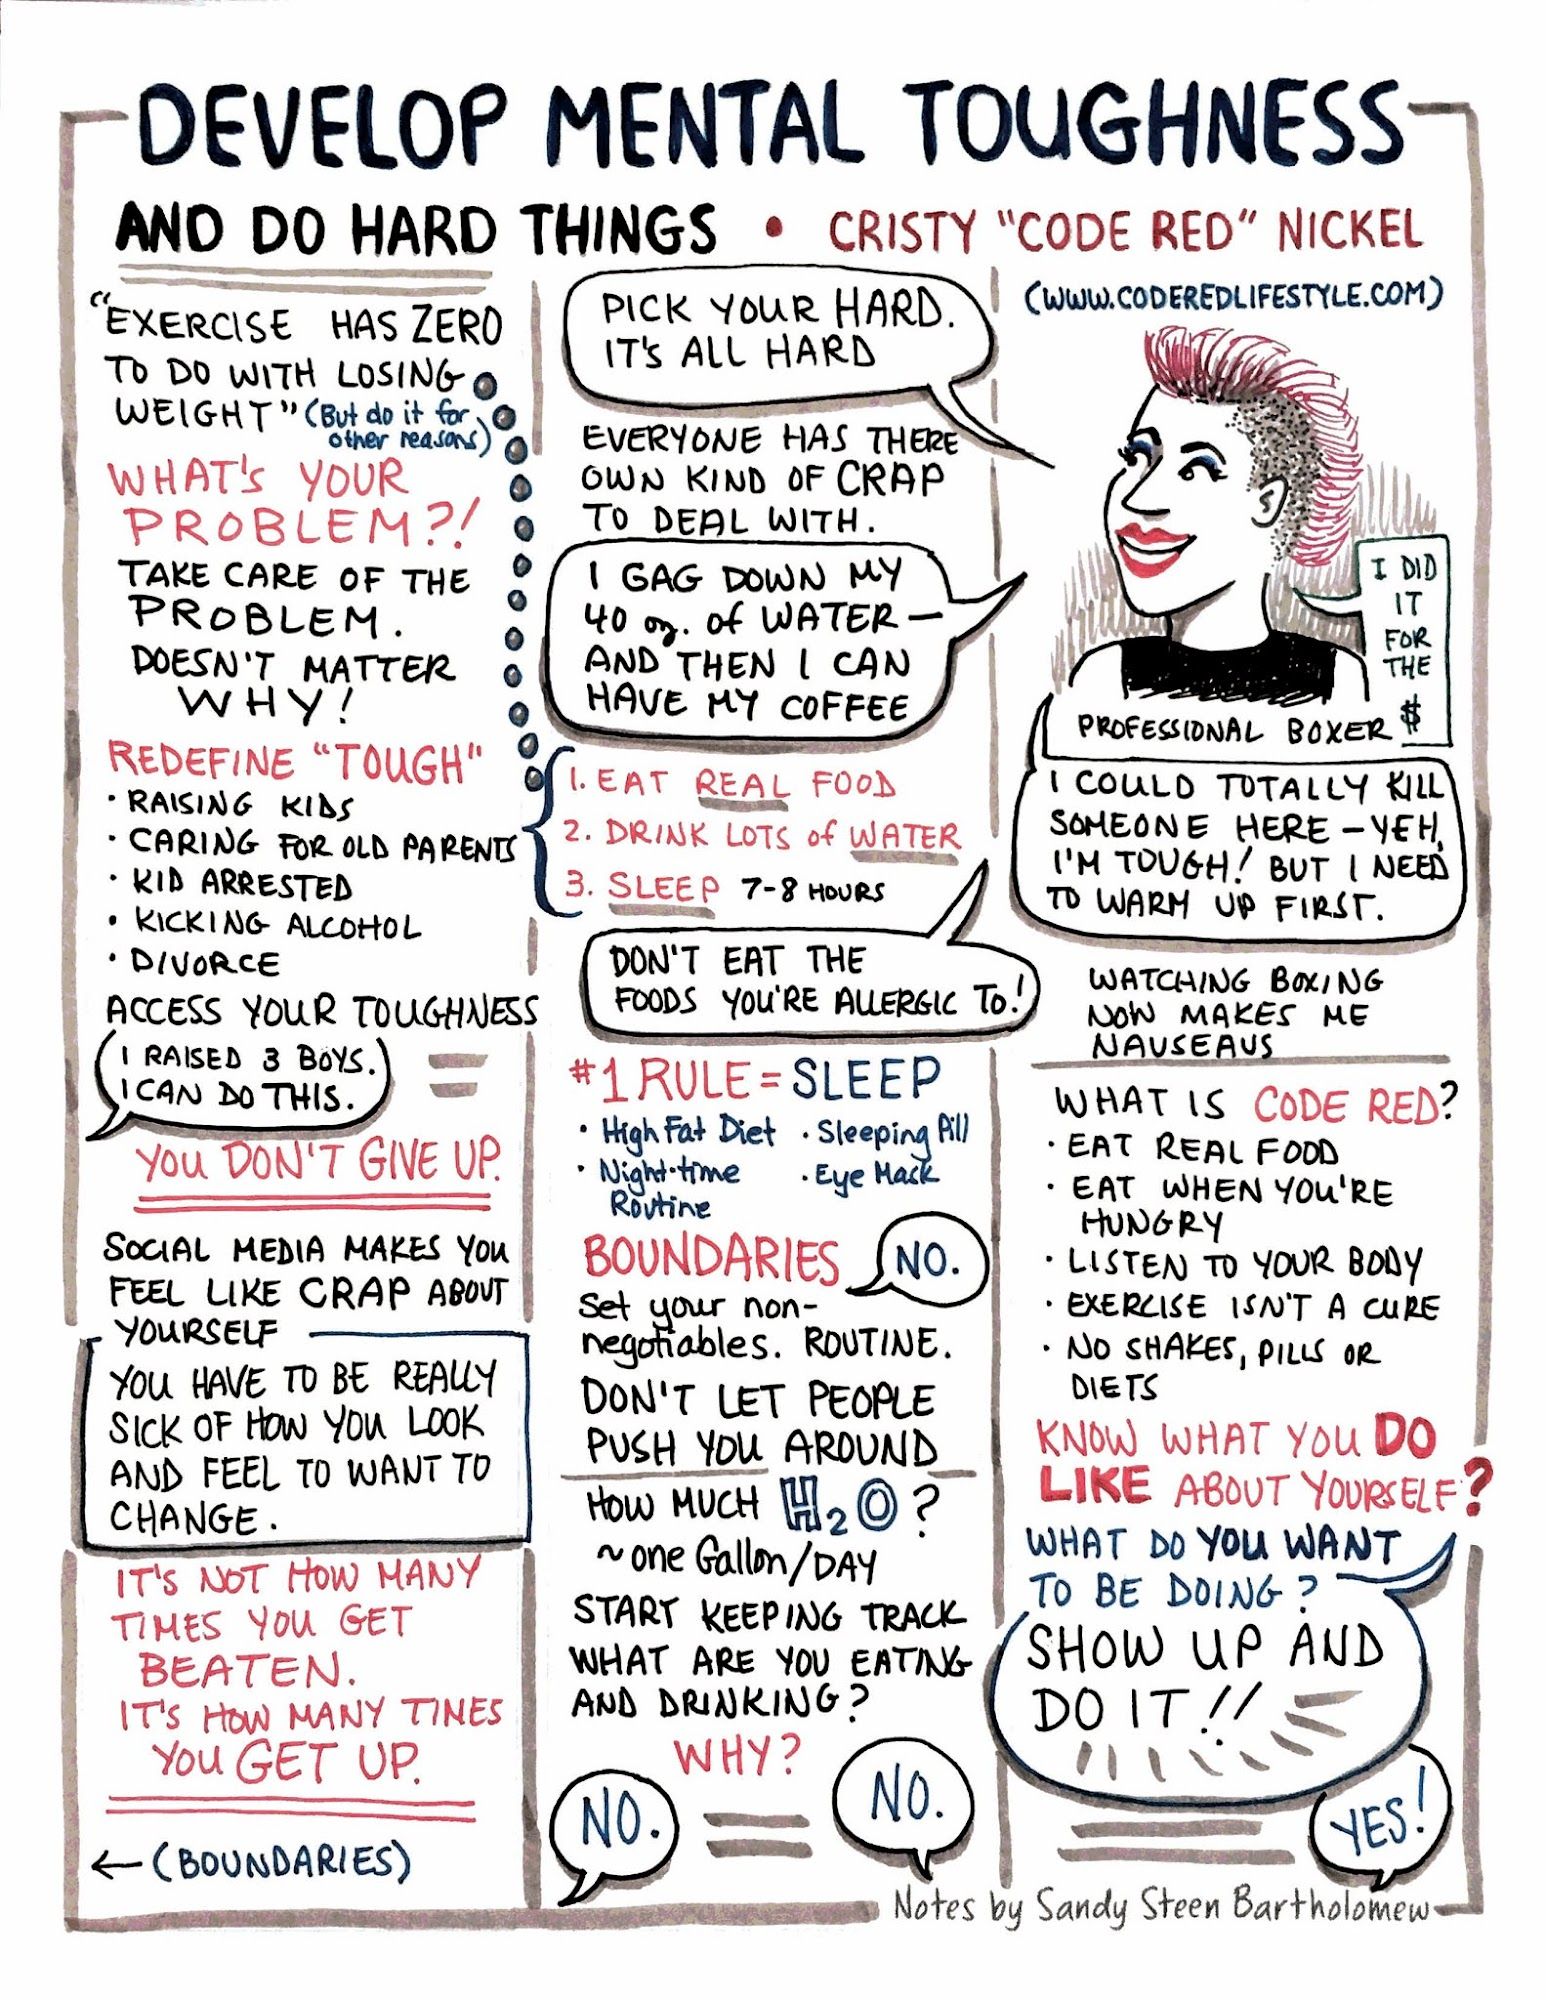 DEVELOP MENTAL TOUGHNESS
AND DO HARD THINGS • CRISTY "CODE RED" NICKEL
(WWW.CODEREDLIFESTYLE.COM)
"EXERCISE HAS ZERO
TO DO WITH LOSING
WEIGHT" (But do it for
other reasons)
WHAT'S YOUR
PROBLEM?!
TAKE CARE OF THE
PROBLEM.
DOESN'T MATTER
WHY!
REDEFINE "TOUGH"
• RAISING KIDS
• CARING FOR OLD PARENTS
• KID ARRESTED
• KICKING ALCOHOL
• DIVORCE
ACCESS YOUR TOUGHNESS
I RAISED 3 BOYS.
I CAN DO THIS.
YOU DON'T GIVE UP.
SOCIAL MEDIA MAKES YOU
FEEL LIKE CRAP ABOUT
YOURSELF
YOU HAVE TO BE REALLY
SICK OF HOW YOU LOOK
AND FEEL TO WANT TO
CHANGE.
IT'S NOT HOW MANY
TIMES YOU GET
BEATEN.
IT'S HOW MANY TIMES
YOU GET UP.
← (BOUNDARIES)
PICK YOUR HARD.
IT'S ALL HARD
EVERYONE HAS THERE
OWN KIND OF CRAP
TO DEAL WITH.
I GAG DOWN MY
40 oz. of WATER —
AND THEN I CAN
HAVE MY COFFEE
1. EAT REAL FOOD
2. DRINK LOTS of WATER
3. SLEEP 7-8 HOURS
DON'T EAT THE
FOODS YOU'RE ALLERGIC TO!
#1 RULE = SLEEP
• High Fat Diet • Sleeping Pill
• Night-time • Eye Mask
Routine
BOUNDARIES NO.
Set your non-
negotiables. ROUTINE.
DON'T LET PEOPLE
PUSH YOU AROUND
HOW MUCH H2O?
~ one Gallon/DAY
START KEEPING TRACK
WHAT ARE YOU EATING
AND DRINKING?
WHY?
NO. NO.
I DID
IT
FOR
THE
$
PROFESSIONAL BOXER
I COULD TOTALLY KILL
SOMEONE HERE – YEH,
I'M TOUGH! BUT I NEED
TO WARM UP FIRST.
WATCHING BOXING
NOW MAKES ME
NAUSEAUS
WHAT IS CODE RED?
• EAT REAL FOOD
• EAT WHEN YOU'RE
HUNGRY
• LISTEN TO YOUR BODY
• EXERCISE ISN'T A CURE
• NO SHAKES, PILLS OR
DIETS
KNOW WHAT YOU DO
LIKE ABOUT YOURSELF?
WHAT DO YOU WANT
TO BE DOING?
SHOW UP AND
DO IT!!
YES!
Notes by Sandy Steen Bartholomew